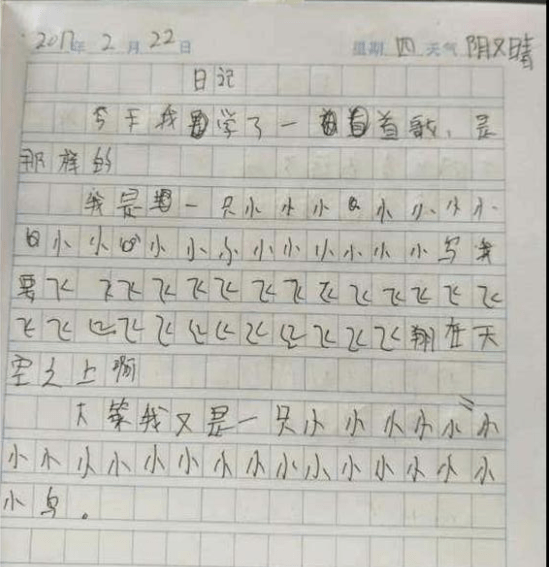 2017年 2月22日 星期四 天气 阴又晴
日记
今天我学了一首歌,是
那样的
我是一只小小小小小小小
小小小小小小小小小小小鸟我
要飞飞飞飞飞飞飞飞飞飞飞飞飞飞
飞飞飞飞飞飞飞飞飞飞飞飞翔在天
空之上啊
大笨我又是一只小小小小小小
小小小小小小小小小小小小小小小
小鸟。